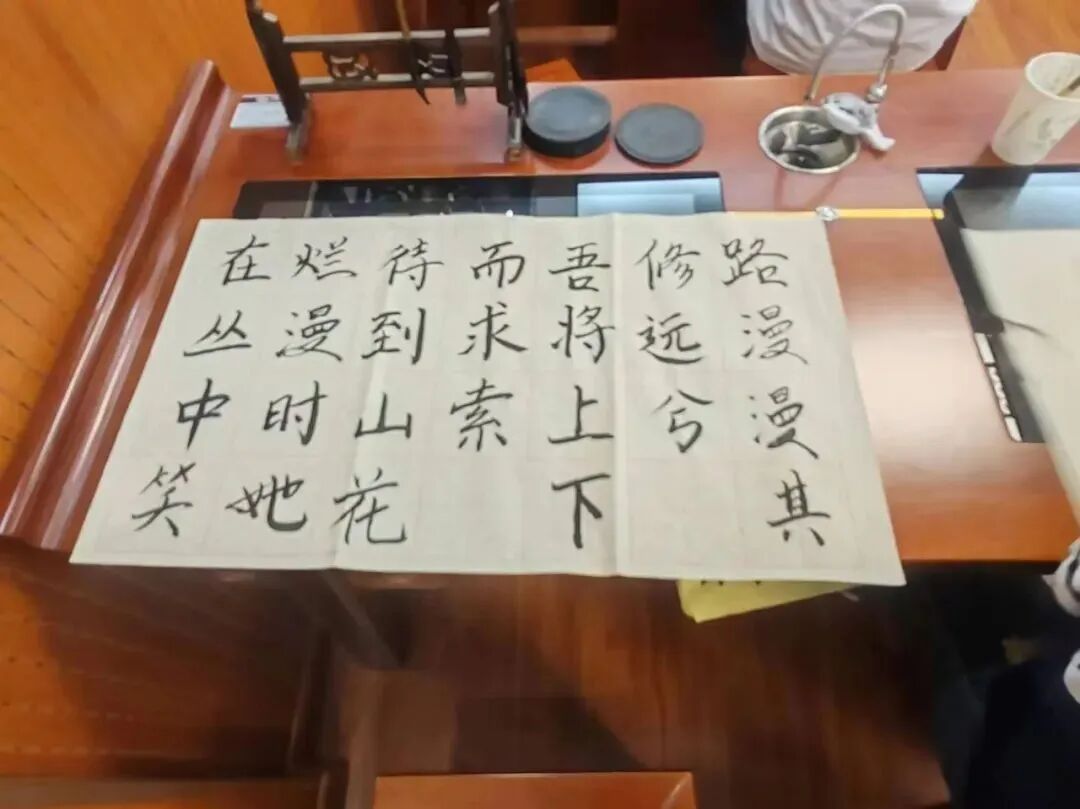 路漫漫其
修远兮
吾将上下
而求索
待到山花
烂漫时她
在丛中笑